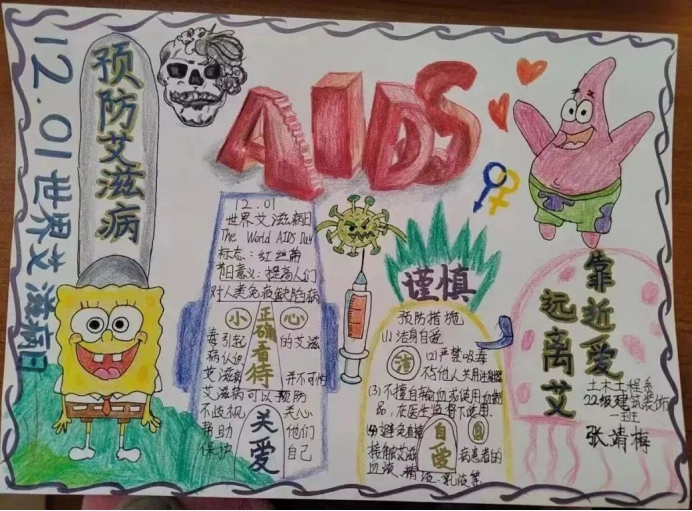 12.01世界艾滋病日
预防艾滋病
AIDS
12.01
世界艾滋病日
The World AIDS Day
标志:红丝带
节日意义:提高人们
对人类免疫缺陷病
小 心
正确看待
毒引起 的艾滋
病认识
艾滋病 并不可怕
艾滋病可以预防
不歧视 关心
帮助 他们
保护 自己
关爱
谨慎
预防措施
(1)洁身自爱
洁
(2)严禁吸毒
不与他人共用注射器
(3)不擅自输血或使用血制
品,在医生监督下使用.
(4)避免直接
自爱
接触艾滋 病患者的
血液、精液、乳液等
靠近爱
远离艾
土木工程系
22级建筑装饰
一班
张靖梅